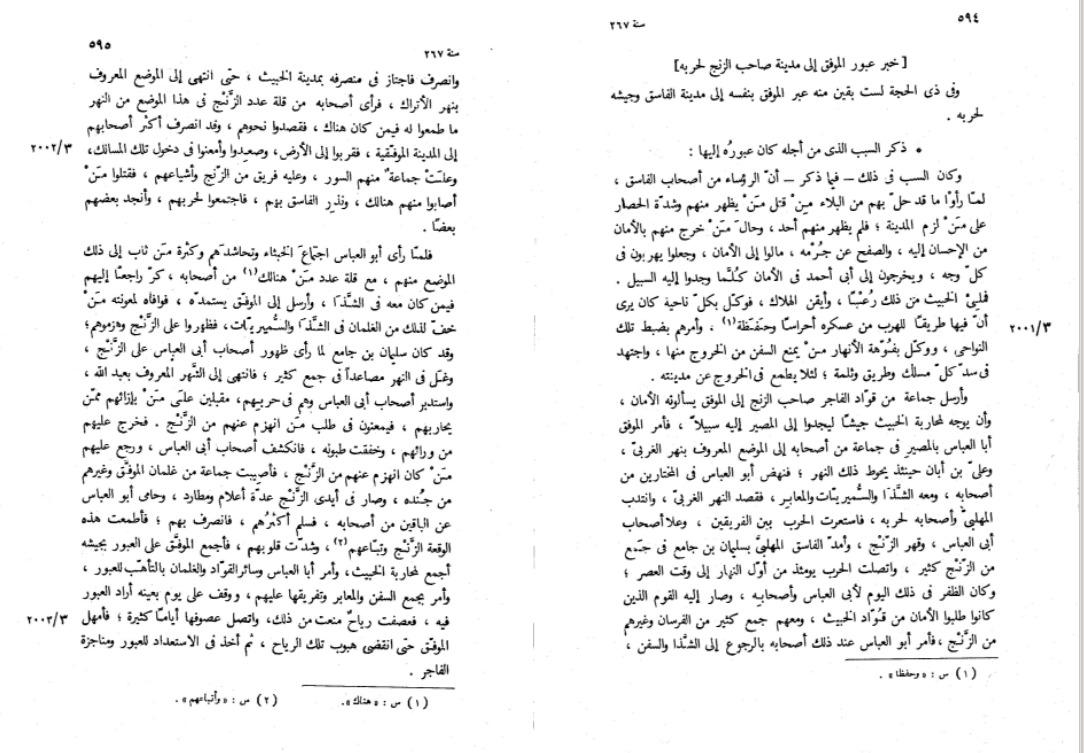 ٥٩٤
سنة ٢٦٧
[ خبر عبور الموفق إلى مدينة صاحب الزنج لحربه ]
وفى ذى الحجة لست بقين منه عبر الموفق بنفسه إلى مدينة الفاسق وجيشه
لحربه .
* ذكر السبب الذى من أجله كان عبورُه إليها :
وكان السبب فى ذلك – فيما ذكر – أنّ الرؤساء من أصحاب الفاسق ،
لمّا رأوْا ما قد حلّ بهم من البلاء مِنْ قتل مَنْ يظهر منهم وشدّة الحصار
على مَنْ لزم المدينة ؛ فلم يظهر منهم أحد ، وحالَ مَنْ خرج منهم بالأمان
من الإحسان إليه ، والصفح عن جُرْمه ، مالوا إلى الأمان ، وجعلوا يهربون فى
كلّ وجه ، ويخرجون إلى أبى أحمد فى الأمان كُلَّما وجدوا إليه السبيل .
فملِئ الخبيث من ذلك رُعْبًا ، وأيقن الهلاك ، فوكّل بكلّ ناحية كان يرى
أنّ فيها طريقًا للهرب من عسكره أحراسًا وحفَظة(١) ، وأمرهم بضبط تلك
٢٠٠١/٣
النواحى ، ووكّل بفُوّهة الأنهار مَنْ يمنع السفن من الخروج منها ، واجتهد
فى سدّ كلّ مسلك وطريق وثلمة ؛ لئلا يطمع فى الخروج عن مدينته .
وأرسل جماعة من قوّاد الفاجر صاحب الزنج إلى الموفق يسألونه الأمان ،
وأن يوجه لمحاربة الخبيث جيشًا ليجدوا إلى المصير إليه سبيلاً ، فأمر الموفق
أبا العباس بالمصير فى جماعة من أصحابه إلى الموضع المعروف بنهر الغربىّ ،
وعلىّ بن أبان حينئذ يحوط ذلك النهر ؛ فنهض أبو العباس فى المختارين من
أصحابه ، ومعه الشَّذَا والسُّميريّات والمعابر ، فقصد النهر الغربىّ ، وانتدب
المهلبىّ وأصحابه لحربه ، فاستعرت الحرب بين الفريقين ، وعلا أصحاب
أبى العباس ، وقهر الزّنْج ، وأمدّ الفاسق المهلبىَّ بسليمان بن جامع فى جَمْع
من الزّنْج كثير ، واتصلت الحرب يومئذ من أوّل النهار إلى وقت العصر ؛
وكان الظفر فى ذلك اليوم لأبى العباس وأصحابه ، وصار إليه القوم الذين
كانوا طلبوا الأمان من قُوّاد الخبيث ، ومعهم جمع كثير من الفرسان وغيرهم
من الزَّنْج ، فأمر أبو العباس عند ذلك أصحابه بالرجوع إلى الشَّذا والسفن ،
(١) س : « وحفظا » .
٥٩٥
سنة ٢٦٧
وانصرف فاجتاز فى منصرفه بمدينة الخبيث ، حتّى انتهى إلى الموضع المعروف
بنهر الأتراك ، فرأى أصحابه من قلة عدد الزَّنْج فى هذا الموضع من النهر
ما طمعوا له فيمن كان هناك ، فقصدوا نحوهم ، وقد انصرف أكثر أصحابهم
إلى المدينة الموفّقية ، فقربوا إلى الأرض، وصعِدوا وأمعنوا فى دخول تلك المسالك،
٢٠٠٢/٣
وعلتْ جماعةٌ منهم السور ، وعليه فريق من الزّنج وأشياعهم ، فقتلوا مَنْ
أصابوا منهم هنالك ، ونذِر الفاسق بهم ، فاجتمعوا لحربهم ، وأنجد بعضهم
بعضًا .
فلمّا رأى أبو العباس اجتماعَ الخبثاء وتحاشدَهم وكثرة مَن ثاب إلى ذلك
الموضع منهم ، مع قلة عدد مَنْ هنالك(١) من أصحابه ، كرّ راجعًا إليهم
فيمن كان معه فى الشَّذَا ، وأرسل إلى الموفّق يستمدّه ، فوافاه لمعونته مَنْ
خفّ لذلك من الغلمان فى الشَّذَا والسُّميريّات، فظهروا على الزَّنْج وهزموهم؛
وقد كان سليمان بن جامع لما رأى ظهور أصحاب أبى العباس على الزَّنْج ،
وغَل فى النهر مصاعداً فى جمع كثير ؛ فانتهى إلى النَّهر المعروف بعبد الله ،
واستدبر أصحاب أبى العباس وهم فى حربهم، مقبلين على مَنْ بإزائهم ممّن
يحاربهم ، فيمعنون فى طلب مَن انهزم عنهم من الزَّنْج . فخرج عليهم
من ورائهم ، وخفقت طبوله ، فانكشف أصحاب أبى العباس ، ورجع عليهم
مَنْ كان انهزم عنهم من الزَّنْج ، فأصيبت جماعة من غلمان الموفّق وغيرهم
من جُنده ، وصار فى أيدى الزَّنْج عدّة أعلام ومطارد ، وحامى أبو العباس
عن الباقين من أصحابه ، فسلم أكثرُهم ، فانصرف بهم ؛ فأطمعت هذه
الوقعة الزَّنْج وتبّاعهم(٢) ، وشدّت قلوبهم ، فأجمع الموفّق على العبور بجيشه
أجمع لمحاربة الخبيث، وأمر أبا العباس وسائر القوّاد والغلمان بالتأهّب للعبور ،
وأمر بجمع السفن والمعابر وتفريقها عليهم ، ووقف على يوم بعينه أراد العبور
فيه ، فعصفت رياحٌ منعت من ذلك، واتصل عصوفها أيامًا كثيرة ؛ فأمهل
٢٠٠٣/٣
الموفّق حتّى انقضى هبوب تلك الرياح ، ثم أخذ فى الاستعداد للعبور ومناجزة
الفاجر .
(١) س : « هناك ». (٢) س : « وأتباعهم » .